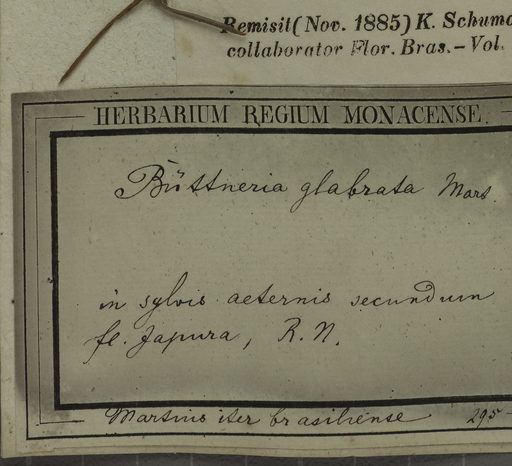 Remisit (Nov. 1885) K. Schum
collaborator Flor. Bras. – Vol.
HERBARIUM REGIUM MONACENSE.
Büttneria glabrata Mart.
in sylvis aeternis secundum
fl. Japura, R. N.
Martius iter brasiliense 295